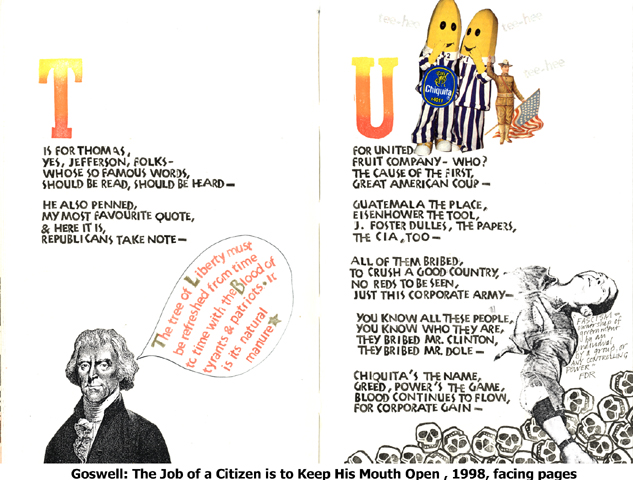 T
IS FOR THOMAS,
YES, JEFFERSON, FOLKS—
WHOSE SO FAMOUS WORDS,
SHOULD BE READ, SHOULD BE HEARD—
HE ALSO PENNED,
MY MOST FAVOURITE QUOTE,
& HERE IT IS,
REPUBLICANS TAKE NOTE—
The tree of Liberty must
be refreshed from time
to time with the Blood of
tyrants & patriots. It
is its natural
manure
tee-hee
tee-hee
tee-hee
Chiquita
4011
U
FOR UNITED
FRUIT COMPANY— WHO?
THE CAUSE OF THE FIRST,
GREAT AMERICAN COUP—
GUATEMALA THE PLACE,
EISENHOWER THE TOOL,
J. FOSTER DULLES, THE PAPERS,
THE CIA, TOO—
ALL OF THEM BRIBED,
TO CRUSH A GOOD COUNTRY,
NO REDS TO BE SEEN,
JUST THIS CORPORATE ARMY—
YOU KNOW ALL THESE PEOPLE,
YOU KNOW WHO THEY ARE,
THEY BRIBED MR. CLINTON,
THEY BRIBED MR. DOLE—
CHIQUITA'S THE NAME,
GREED, POWER'S THE GAME,
BLOOD CONTINUES TO FLOW,
FOR CORPORATE GAIN—
FASCISM is
ownership of
government
by an
individual,
by a group, or
any controlling
power"
FDR
Goswell: The Job of a Citizen is to Keep His Mouth Open , 1998, facing pages